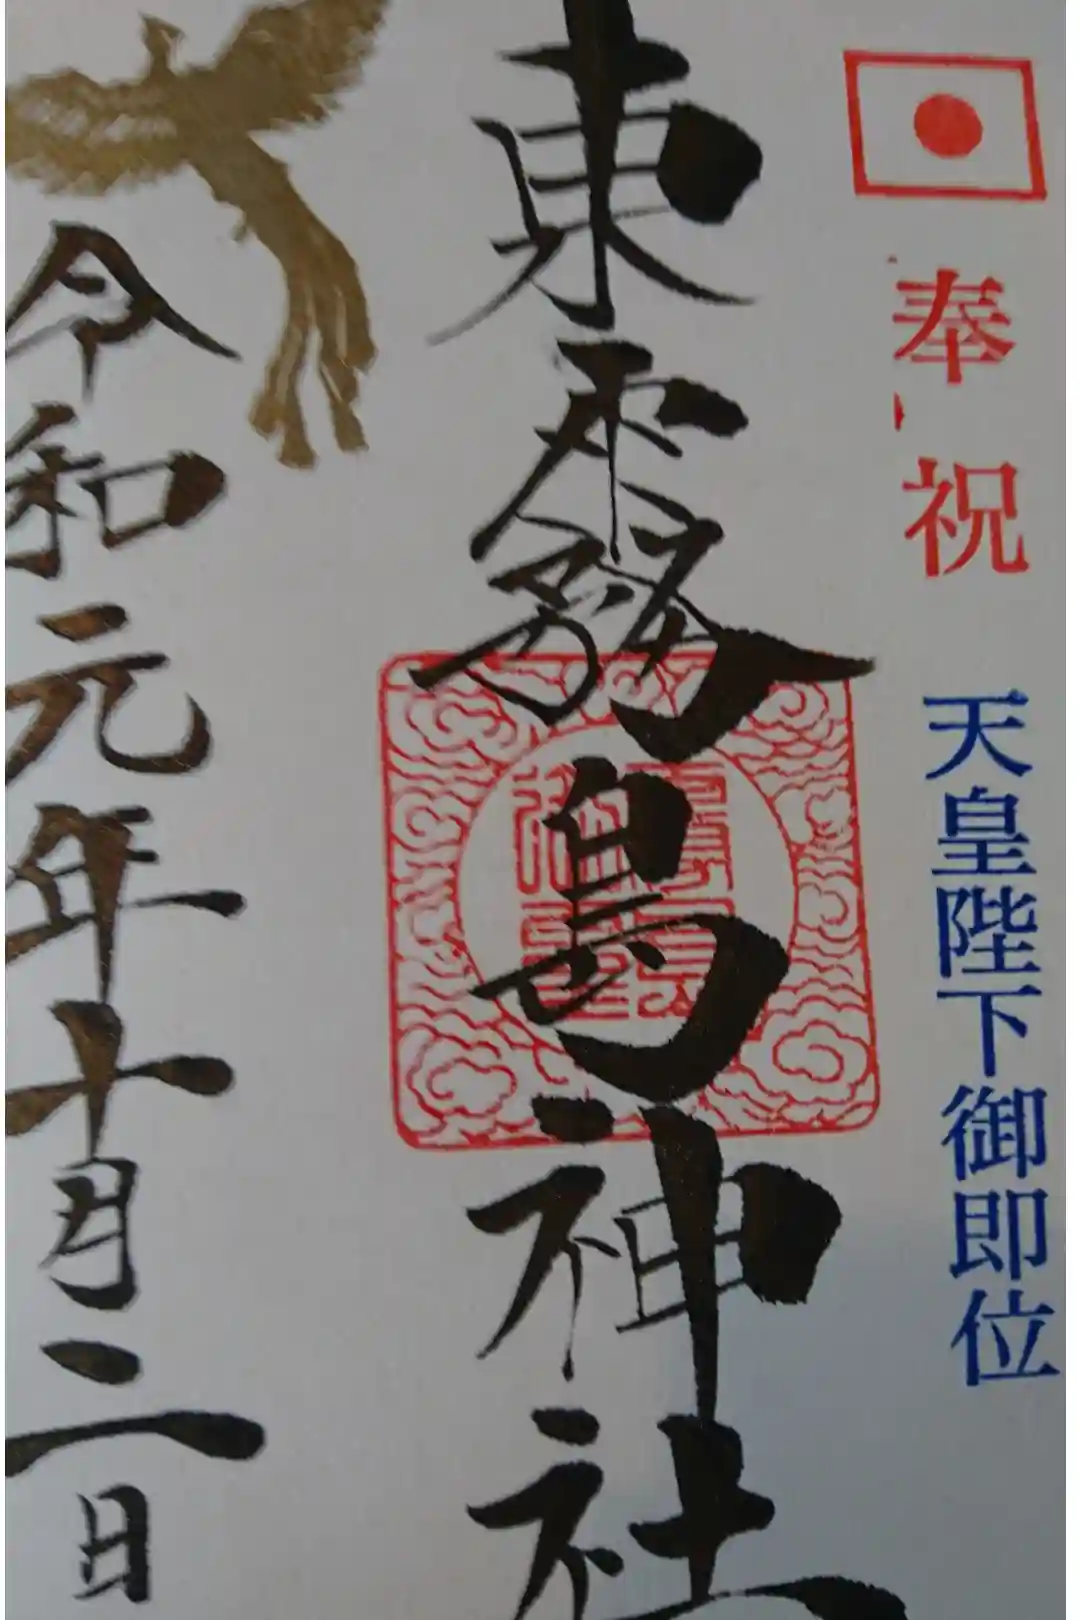 奉祝 天皇陛下御即位
東霧島神社
令和元年十月二日